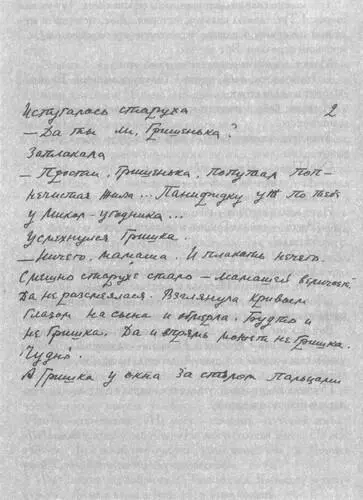 Испугалась старуха 2
— Да ты ли, Гришенька?
Заплакала
— Прости, Гришенька, попутал поп-
нечистая жила... Панифидку уж по тебе
у Микол-угодника...
Усмехнулся Гришка.
— Ничего, мамаша. И плакать нечего.
Смешно старухе стало — мамашей величает
Да не рассмеялася. Взглянула кривым
глазом на сына и обмерла. Будто и
не Гришка. Да и впрямь может не Гришка.
Чудно.
А Гришка у окна за столом пальцами